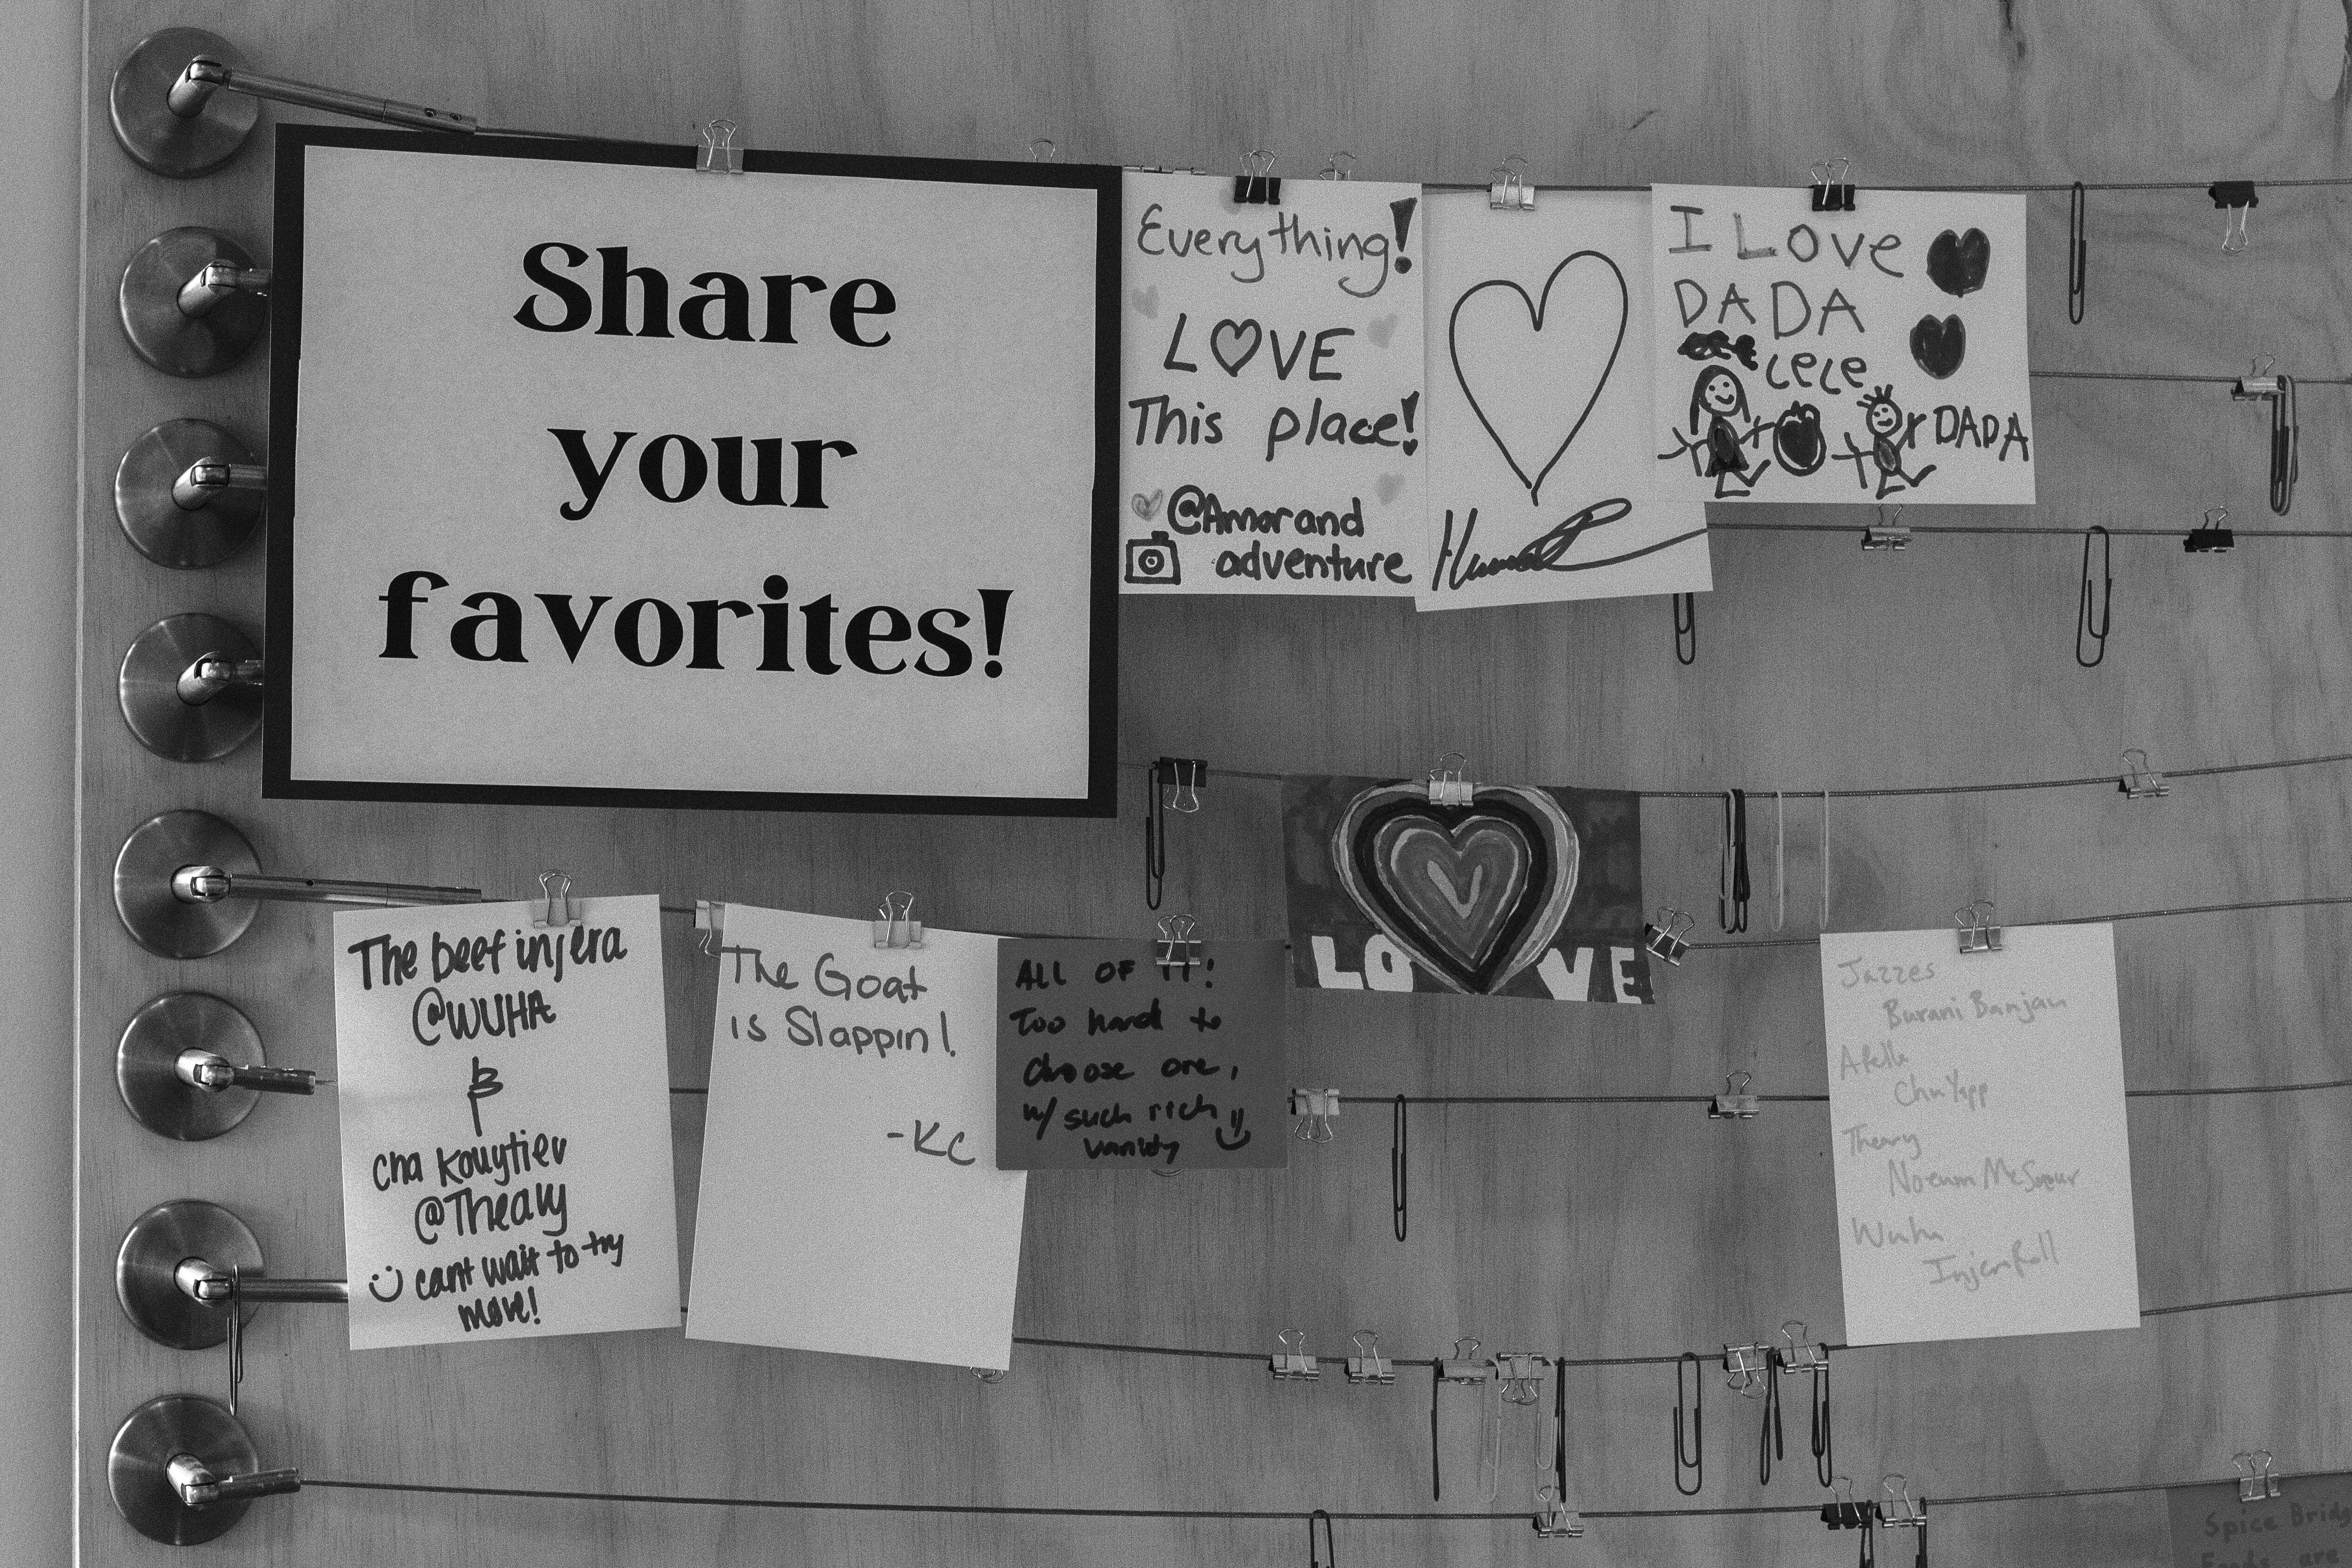 Share
your
favorites!
Everything!
LOVE
This place!
@Amorand
adventure
I LOve
DADA
cece
DADA
LOVE
The beef injera
@WUHA
&
cha kouytiev
@Theary
cant wait to try
more!
The Goat
is Slappin!
-KC
ALL OF IT!
Too hard to
choose one,
w/ such rich
variety
Jazzes
Burani Banjan
Theary
Wuha
Spice